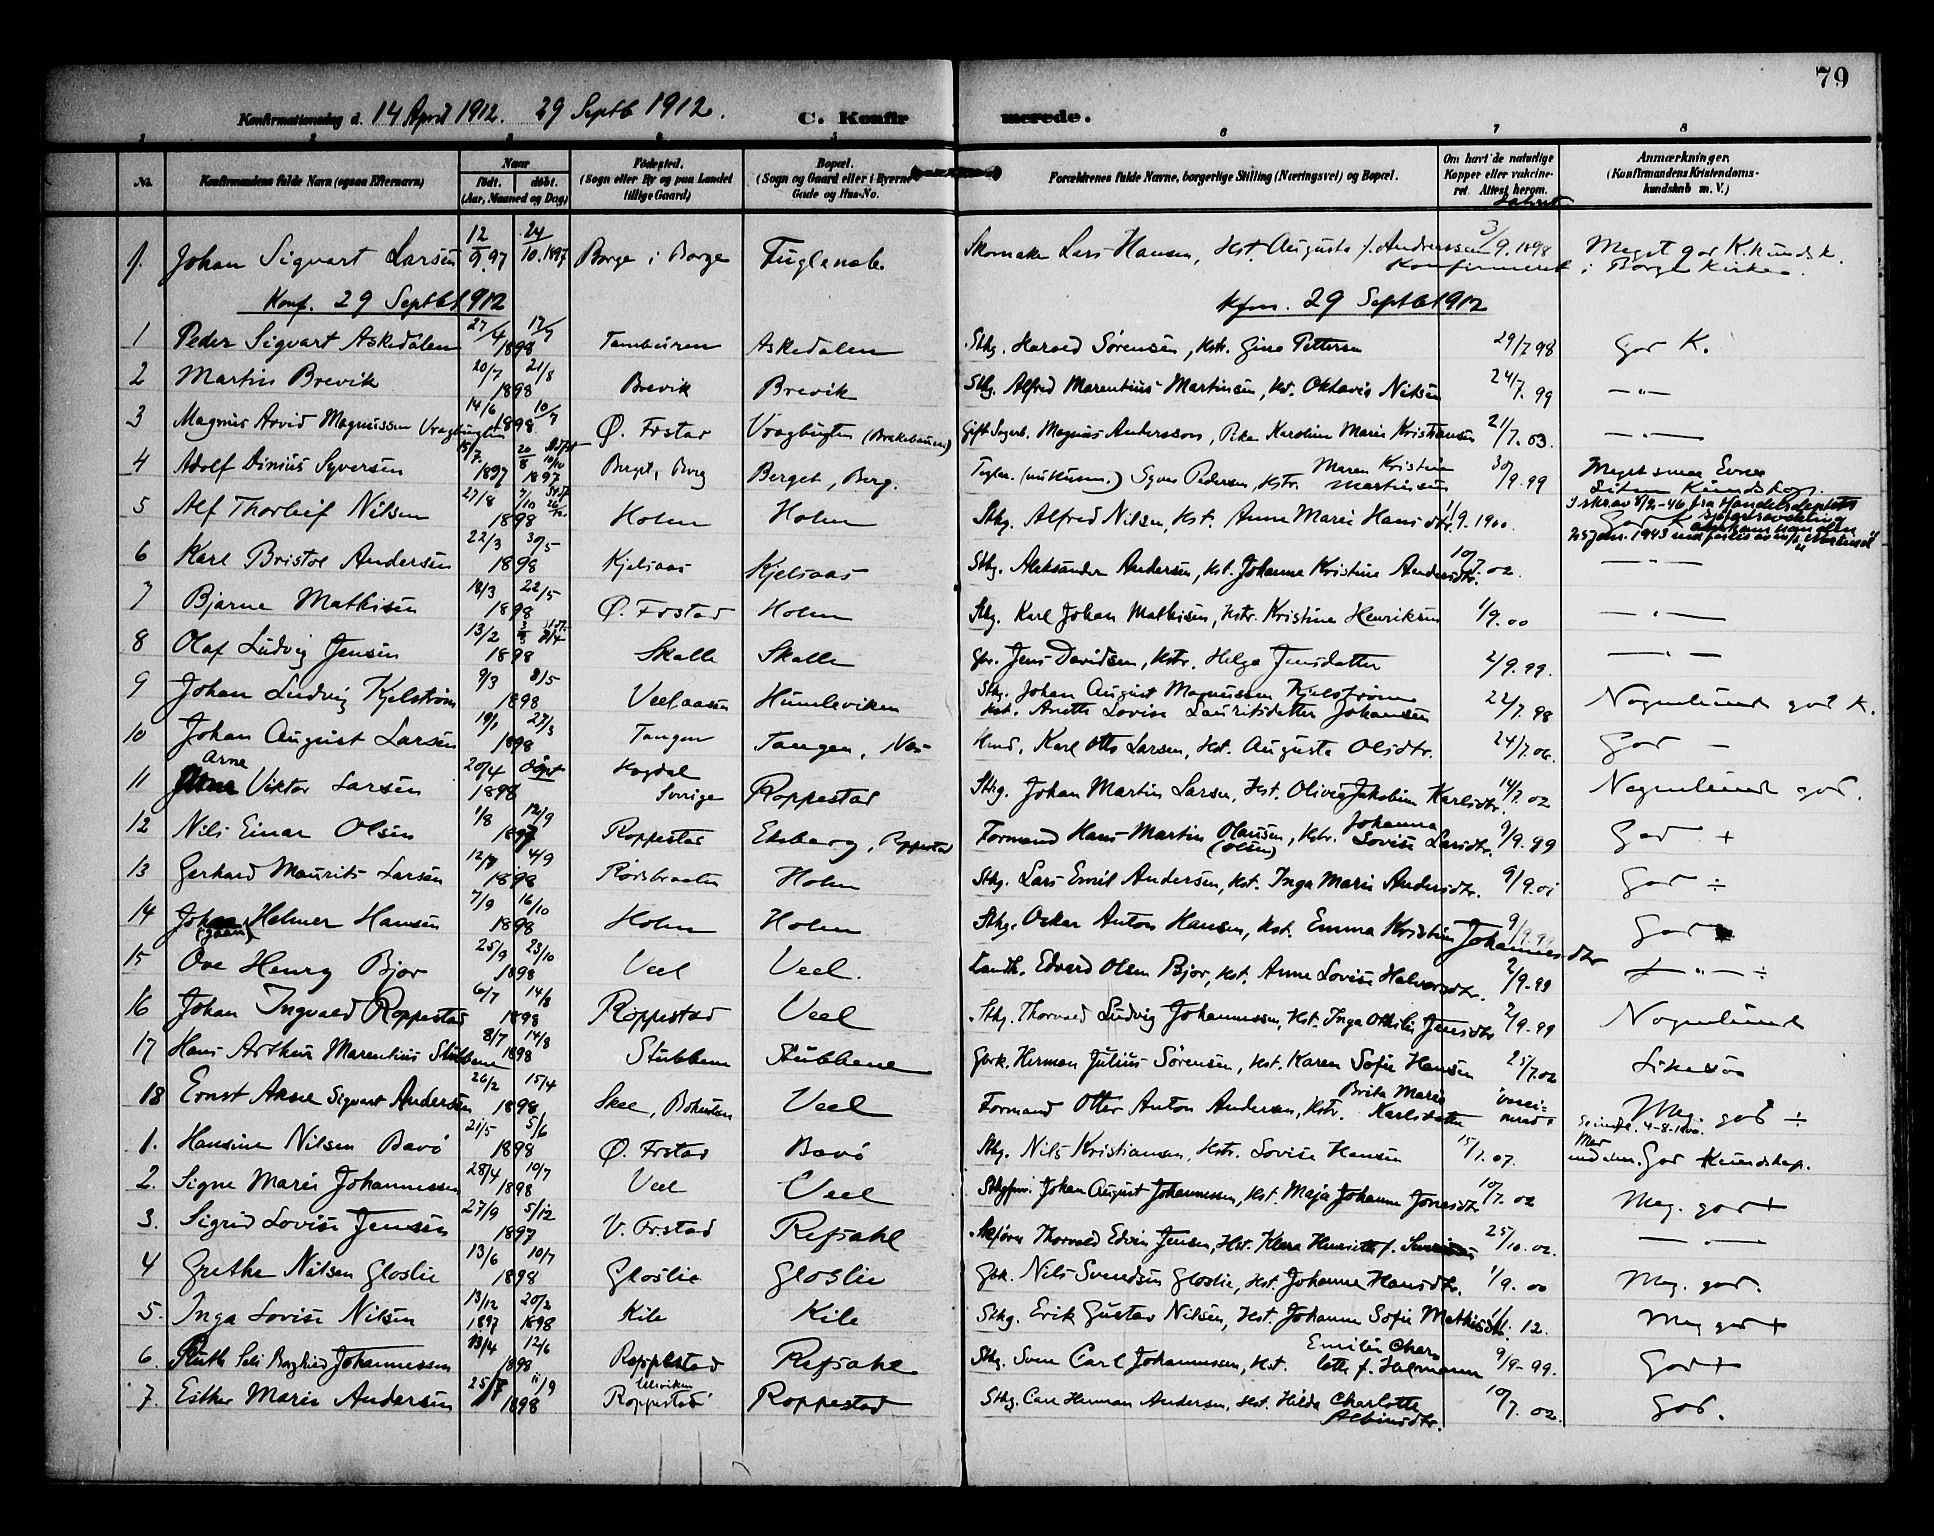 79
Konfirmationsdag d. 14 April 1912. 29 Septb 1912. C. Konfirmerede.
1 2 3 4 5 6 7 8
No. Konfirmandens fulde Navn (ogsaa Efternavn) Naar født. døbt. (Aar, Maaned og Dag) Fødested. (Sogn eller By og paa Landet tillige Gaard) Bopæl. (Sogn og Gaard eller i Byerne Gade og Hus-No. Forældrenes fulde Navne, borgerlige Stilling (Næringsvei) og Bopæl. Om havt de naturlige Kopper eller vaccineret. Attest herom. Anmærkninger. (Konfirmandens Kristendomskundskab m. V.)
1. Johan Sigvart Larsen 12/9.97 24/10.1897 Borge i Borge Fuglenab. Skomaker Lars Hansen, Hst. Augusta f. Andreassen 3/9.1898 Meget god K.kundsk.
Konfirmeret i Borge Kirke.
Konf. 29 Septb 1912 Kfm. 29 Septb 1912
1 Peder Sigvart Askedalen 27/4 17/7 1898 Tamburen Askedalen Sthg. Harald Sørensen, Hst. Gina Pettersen 29/7 98 God K.
2 Martin Brevik 20/7 21/8 1898 Brevik Brevik Sthg. Alfred Marentius Martinsen, Hst. Oktavia Nilsen 24/7. 99 — " —
3 Magnus Arvid Magnussen Vragbugten 14/6 10/7 1898 Ø. Frstad Vragbugten Magnus Andersson, Pike Karoline Marie Kristiansen 21/7. 03. — " —
4 Adolf Dinius Syversen 15/7. 1897 20/8 1897 Berget, Berg Berget, Berg. Syver Pedersen, Hstr. Maren Kristine Martinsen 30/9. 99 Meget smaa Evner
Liten Kundskap.
5 Alf Thorleif Nilsen 27/8 1898 Holm Holm Sthg. Alfred Nilsen, Hst. Anne Marie Hansdtr. 11/9. 1900. God K
6 Karl Bristol Andersen 22/3 30/5 1898 Kjelsaas Kjelsaas Sthg. Aleksander Andersen, Hst. Johanna Kristine Andersdtr. 10/7. 02. — " —
7 Bjarne Mathisen 18/3 22/5 1898 Ø. Frstad Holm Sthg. Karl Johan Mathisen, Hstr. Kristine Henriksen 1/9. 00 — " —
8 Olaf Ludvig Jensen 13/2 1898 Skalle Skalle Gbr. Jens Davidsen, Hstr. Helga Jensdatter 2/9. 99. — " —
9 Johan Ludvig Kjelstrøm 9/3 8/5 1898 Veelaasen Humleviken Sthg. Johan August Magnussen Kjelstrøm
Hst. Anette Lovise Lauritsdatter Johansen 22/7. 98 Nogenlunde god K.
10 Johan August Larsen 19/1 27/3 1898 Tangen Tangen, Nes Karl Otto Larsen, Hst. Augusta Olsdtr. 24/7. 06. God —
11 Arne Viktor Larsen 20/4 1898 døpt Hogdal Sverige Roppestad Sthg. Johan Martin Larsen, Hst. Olivia Jakobine Karlsdtr. 14/7. 02 Nogenlunde god.
12 Nils Einar Olsen 1/8 12/9 1897 Roppestad Ekeberg, Roppestad Formand Hans Martin Olaussen (Olsen), Hstr. Johanna Lovise Larsdtr. 9/9. 99 God +
13 Gerhard Maurits Larsen 12/7 4/9 1898 Rødsbraaten Holm Sthg. Lars Emil Andersen, Hst. Inga Marie Andersdtr. 9/9. 01 God ÷
14 Johan Helmer Hansen 7/9 16/10 1898 Holm Holm Sthg. Oskar Anton Hansen, Hst. Emma Kristine Johannesdtr 9/9. 99 God
15 Ove Henry Bjor 25/9 23/10 1898 Veel Veel. Landh. Edvard Olsen Bjor, Hst. Anne Lovise Halvorsdtr. 2/9. 99 — " — ÷
16 Johan Ingvald Roppestad 6/7 14/8 1898 Roppestad Veel Sthg. Thorvald Ludvig Johannessen, Hst. Inga Othilie Jensdtr 2/9. 99 Nogenlunde
17 Hans Arthur Marentius Stubbene 8/7 14/8 1898 Stubbene Stubbene Gbrk. Herman Julius Sørensen, Hst. Karen Sofie Hansen 25/7. 02 Likesaa
18 Ernst Aksel Sigvart Andersen 26/2 15/4 1898 Skee, Bohuslen Veel Formand Otto Anton Andersen, Hstr. Brita Marie Karlsdatter Meg. god ÷
1. Hansine Nilsen Bavø 21/5 5/6 1898 Ø. Frstad Bavø Sthg. Nils Kristiansen, Hstr. Lovise Hansen 15/1. 07. God Kundskap.
2. Signe Marie Johannessen 28/4 10/7 1898 Veel Veel Johan August Johannessen, Hst. Maja Johanne Jonasdtr 10/7. 02 Meg. god +
3. Sigrid Lovise Jensen 27/9 5/12 1897 V. Frstad Refsahl Thorvald Edvin Jensen, Hst. Klara Henriette f. 25/10. 02. — " —
4 Grethe Nilsen Gloslie 13/6 10/7 1898 Gloslie Gloslie Gbk. Nils Svendsen Gloslie, Hst. Johanne Hansdtr. 1/9. 00 Meg. god.
5. Inga Lovise Nilsen 13/12 1897 20/2 1898 Kile Kile Sthg. Erik Gustav Nilsen, Hst. Johanne Sofie Mathisdtr. 12. Meg god +
6. Ruth Seli Borghild Johannessen 13/4 12/6 1898 Roppestad Refsahl Sthg. Sven Carl Johannessen, Hst. Emilie Charlotte f. Hermann 9/9. 99. God +
7. Esther Marie Andersen 25/7 11/9 1898 Ulleviken Roppestad Roppestad Sthg. Carl Herman Andersen, Hst. Hilda Charlotte Albinsdtr. 10/7. 02. God.